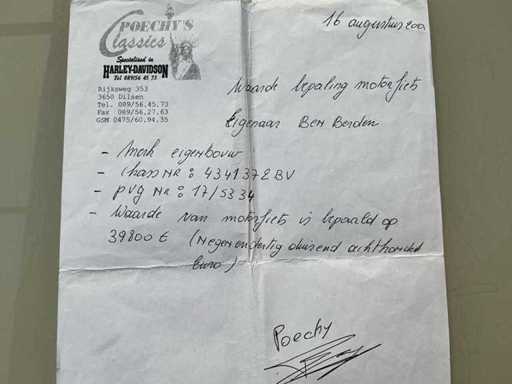 POECHY'S
Classics
Specialised in
HARLEY-DAVIDSON
Tel 089/56 45 73
Rijksweg 353
3650 Dilsen
Tel. 089/56.45.73
Fax 089/56.27.63
GSM 0475/60.94.35
16 augustus
Waarde bepaling motorfiets
Eigenaar Ben Berden
- Merk eigenbouw
- Chass NR : 4341372BV
- pvg NR : 17/5334
- Waarde van motorfiets is bepaald op
39800 € (Negenendertig duizend achthonderd
Euro)
Poechy